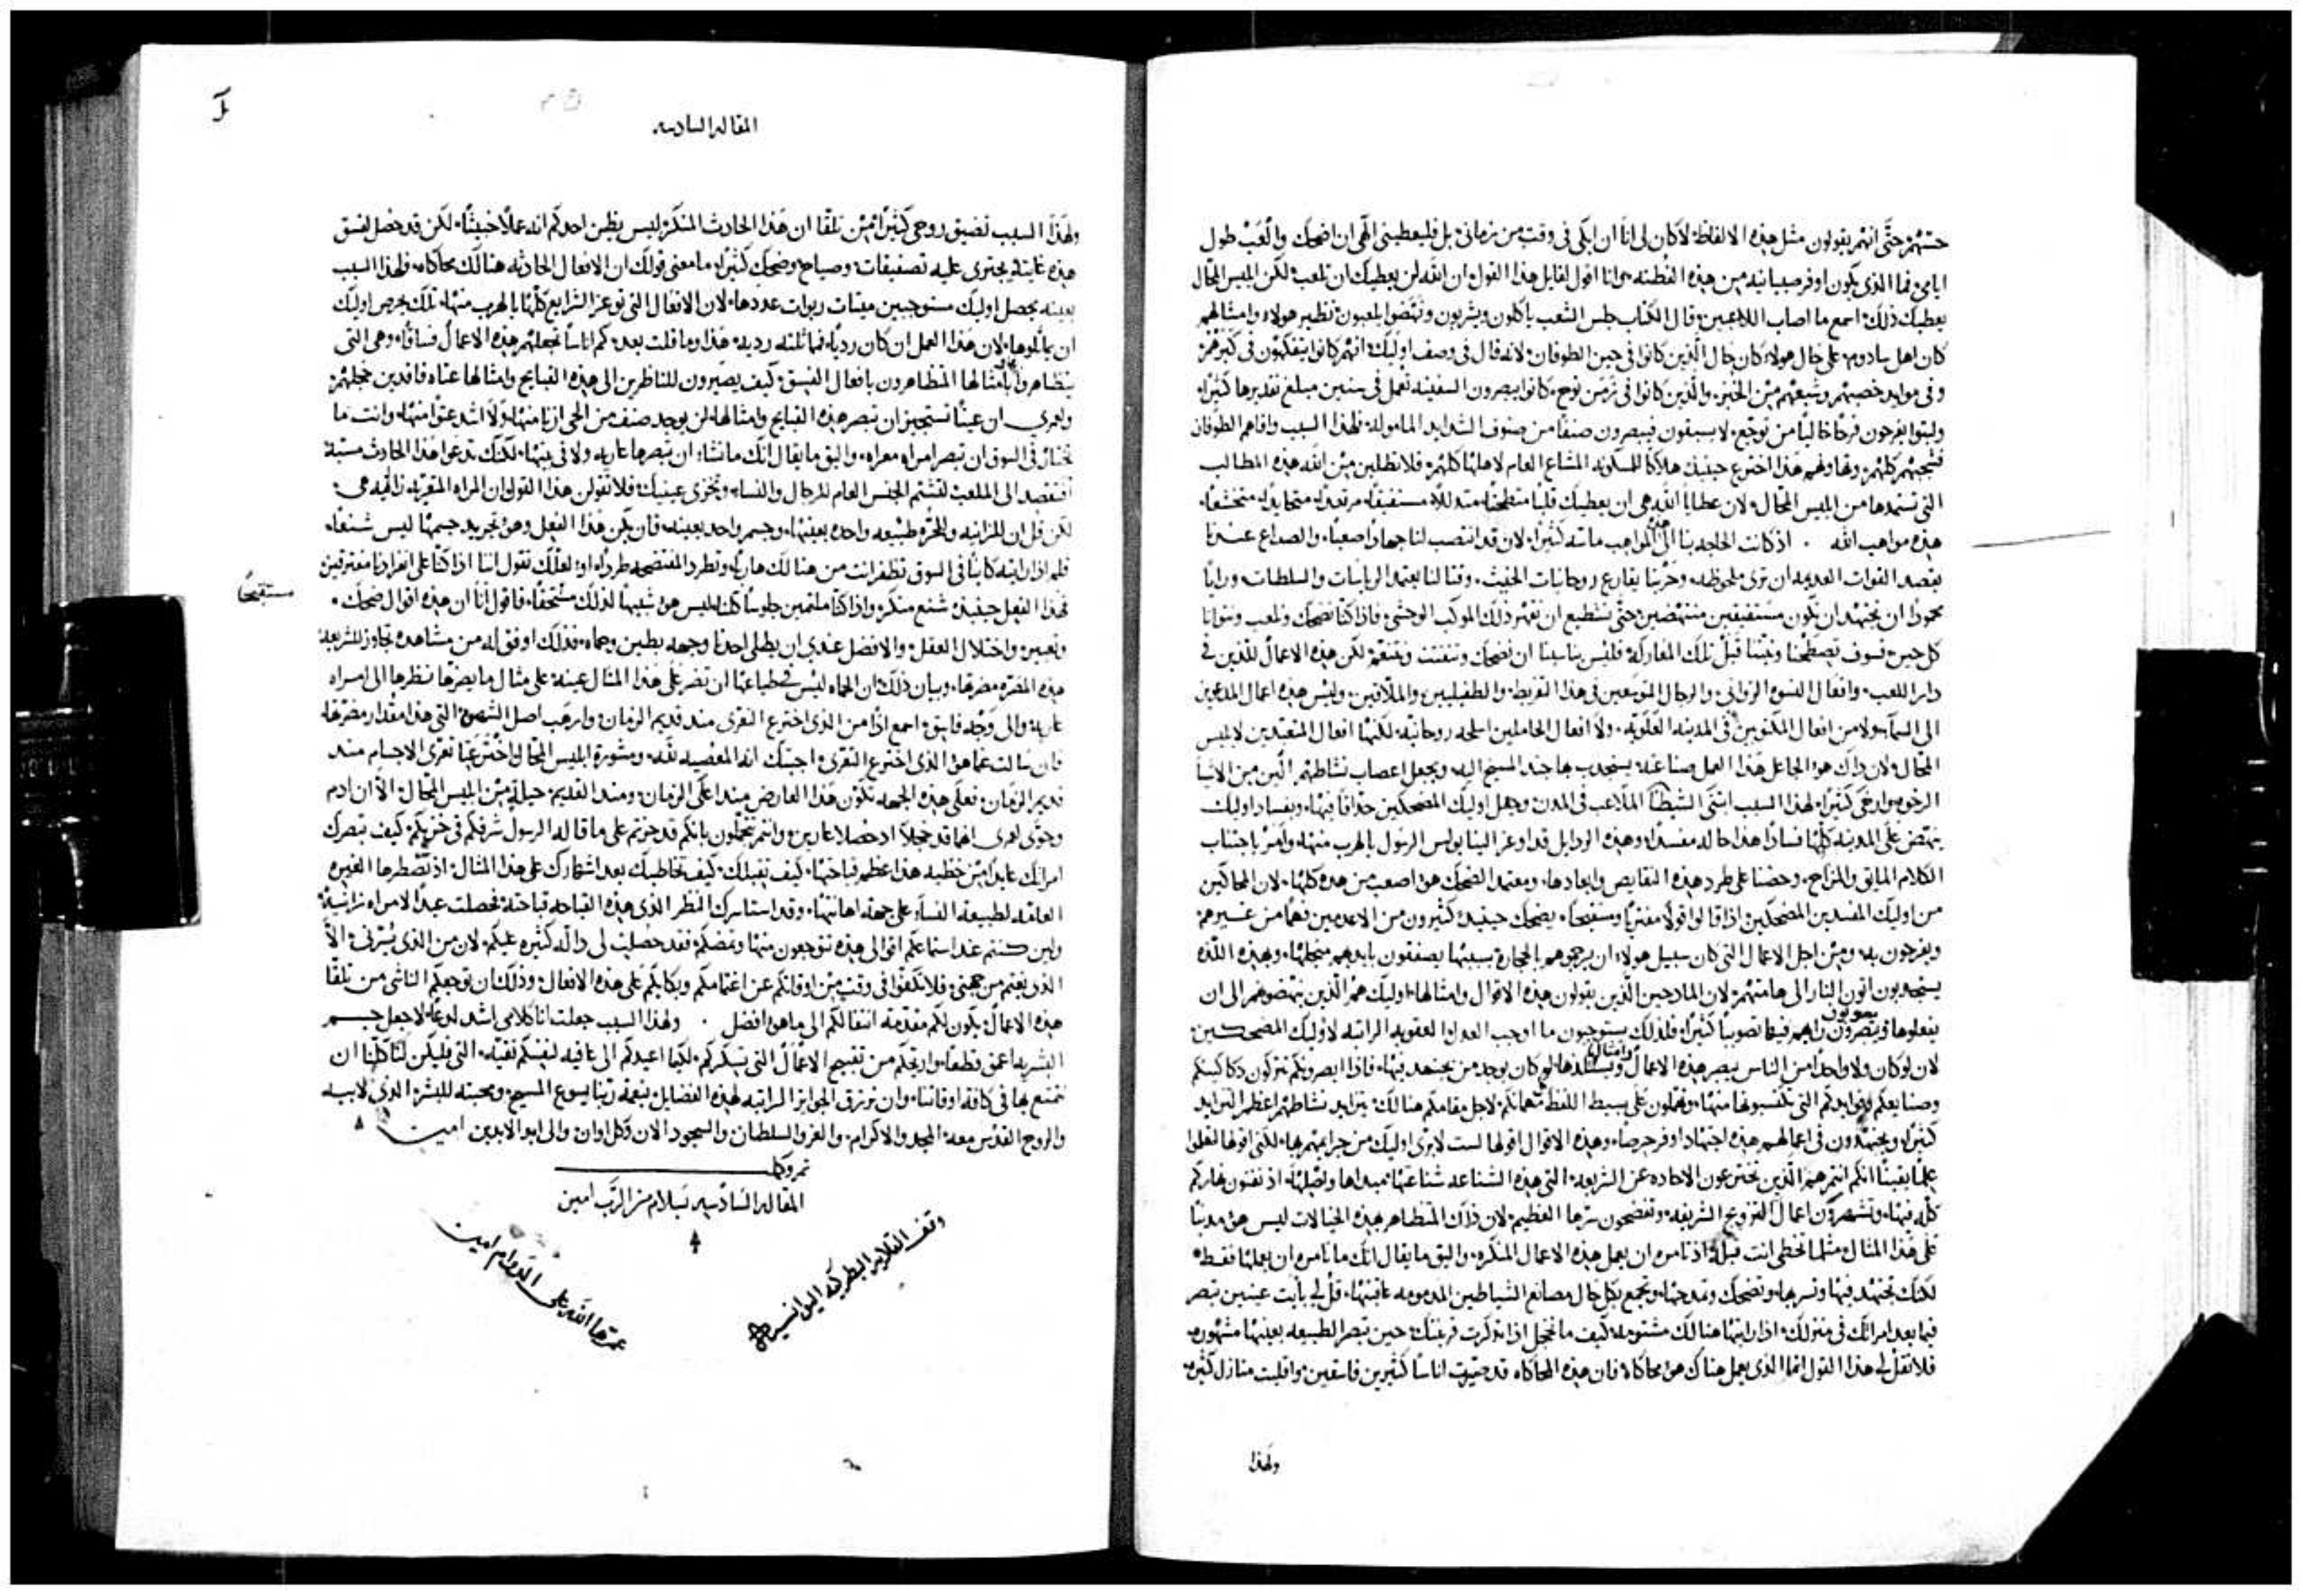 حسهم حتى انهم يقولون مثل هذه الالفاظ لا كان لي انا ان ابكي في وقت من زماني بل فليعطيني الهي ان اضحك والعب طول
ايامي وفما الذي يكون اوفر صبيانيه من هذه الفطنه وانا اقول لقايل هذا القول ان الله لن يعطيك ان تلعب لكن ابليس المحال
يعطيك ذلك اسمع ما اصاب اللاعبين قال الكتاب جلس الشعب ياكلون ويشربون ونهضوا يلعبون نظير هولاء وامثالهم
كان اهل سادوم على حال هولاء كان حال الذين كانوا في حين الطوفان لانه قال في وصف اوليك انهم كانوا يتفكهون في كبرهم
وفي موايد خصبهم وشبعهم من الخبز والذين كانوا في زمن نوح كانوا يبصرون السفينه تعمل في سنين مبلغ تقديرها كثير
ولبثوا يفرحون فرحا خاليا من توجع لا يسبقون فيبصرون صنفا من صنوف الشدايد المامولة فلهذا السبب وافاهم الطوفان
فسحبهم كلهم هذا اخترع حينيذ هلاكا للمسكونه المشاع العام لاهلها كلهم فلا تطلبن من الله هذه المطالب
التي تستمدها من ابليس المحال لان عطايا الله هي ان يعطيك قلبا متطحنا متذللا مستفيقا مرتعدا متخشعا
هذه مواهب الله . اذ كانت الحاجه بنا الى هذه المواهب ماسه كثيرا لان قد انتصب لنا جهادا صعبا والصراع عندنا
يقصد القوات العديمه ان ترى ملحوظه وحربنا يقارع روحانيات الخبث وقتالنا يعتمد الرياسات والسلطات ورايا
محمودا ان نجتهد ان نكون مستفيقين منتهضين حتى نستطيع ان نقهر ذلك الموكب الوحشي فاذا كنا نضحك ونلعب ونتوانا
كل حين فسوف قبل تلك المعاركه فليس يناسبنا ان نضحك ونتفتت ونتنعم لكن هذه الاعمال للذين في
دار اللعب وافعال النسوه الزواني والرجال المتوسعين في هذا التفريط والطفيليين والملاقين وليس هذه اعمال المدعوين
الى السماء ولا من افعال المكتوبين في المدينه العلويه ولا افعال الحاملين اسلحه روحانيه لكنها افعال المتعبدين لابليس
المحال لان ذاك هو الجاعل هذا العمل صناعه يستجذب بها جند المسيح اليه ويجعل اعصاب نشاطهم الين من الاشيا
الرخوه وارخى كثيرا لهذا السبب ابتنى الشيطان الملاعب في المدن وجعل اوليك المضحكين حذاقا فيها وبفساد اوليك
ينهض على المدينه كلها فسادا هذا حاله مفسدا وهذه الرذايل قد اوعز الينا بولس الرسول بالهرب منها وامر باجتناب
الكلام المايق والمزاح وحضنا على طرد هذه النقايص وابعادها ومعتمد الضحك هو اصعب من هذه كلها لان المحاكين
من اوليك المفسدين المضحكين اذا قالوا قولا مفتريا ومستقبحا يضحك حينيذ كثيرون من الاعدمين فهما من غيرهم
ويفرحون به ومن اجل الاعمال التي كان سبيل هولاء ان يرجموهم بالحجارة بسببها يصفقون بايديهم من اجلها وبهذه اللذه
يستجذبون اتون النار الى هامتهم لان المادحين الذين يقولون هذه الاقوال وامثالها اوليك هم الذين ينهضوهم الى ان
يفعلوها ويصوبون رايهم فيها تصويبا كثيرا فلذلك يستوجبون ما اوجب العدل العقوبه الراتبه لاوليك المضحكين
لان لو كان ولا واحدا من الناس يبصر هذه الاعمال وامثالها ويستلذها لم كان يوجد من يجتهد فيها فاذا ابصروكم تتركون دكاكينكم
وصنايعكم وفوايدكم التي تكتسبونها منها وتهملون على بسيط اللفظ مهماتكم لاجل مقامكم هنالك يتزايد نشاطهم اعظم التزايد
كثيرا ويجتهدون في اعمالهم هذه اجتهادا اوفر حرصا وهذه الاقوال اقولها لست لابري اوليك من جرايمهم بها لكني اقولها لتعلموا
علما يقينا انكم انتم هم الذين تخترعون الاحاده عن الشريعه التي هذه الشناعه شناعتها مبداها واصلها اذ تفنون نهاركم
كله فيها وتشهرون اعمال التزويج الشريفه وتفضحون سرها العظيم لان ذلك المتظاهر بهذه الخيالات ليس هو مذنبا
على هذا المثال مثلما تخطي انت قبله اذ تامره ان يعمل هذه الاعمال المنكره واليق ما يقال انك ما تامره ان يعملها فقط
لكنك تجتهد فيها وتسر بها وتضحك وتمدحها وتجمع بكل حال مصانع الشياطين المذمومه عاقبتها قل لي بايت عينين تبصر
فيما بعد امراتك في منزلك اذا رايتها هنالك مشتومه كيف ما تخجل اذا تذكرت قرينتك حين تبصر الطبيعه بعينها مشهوره
فلا تقل لي هذا القول انما الذي يعمل هناك هو محاكاة فان هذه المحاكاه قد صيرت اناسا كثيرين فاسقين واقلبت منازل كثيره
ولهذا
المقاله السادسه
ولهذا السبب تضيق روحي كثيرا من تلقا ان هذا الحادث المنكر ليس يظن احدكم انه عملا خبيثا لكن قد حصل لفسق
هذه غايته يجترى عليه تصفيقات وصياح وضحك كثيرا ما معنى قولك ان الافعال الحادثه هنالك محاكاه فلهذا السبب
بعينه يحصل اوليك مستوجبين ميتات ربوات عددها لان الافعال التي توعز الشرايع كلها بالهرب منها تلك يحرص اوليك
ان يماثلوها لان هذا العمل ان كان رديا فمماثلته رديه هذا وما قلت بعد كم اناسا تجعلهم هذه الاعمال فساقا وهي التي
يتظاهر بامثالها المتظاهرون بافعال الفسق كيف يصيرون للناظرين الى هذه القبايح وامثالها عتاه فاقدين خجلهم
ولعمري ان عينا تستجيز ان تبصر هذه القبايح وامثالها لن يوجد صنف من الحي ازنا منها ولا اشد عتوا منها وانت ما
تختار في السوق ان تبصر امراه معراه واليق ما يقال انك ما تشاء ان تبصرها عاريه ولا في بيتها لكنك تدعوا هذا الحادث مسبة
افتقصد الى الملعب لتشتم الجنس العام للرجال والنساء وتخزى عينيك فلا تقولن هذا القول ان المراه المتعريه زانيه هي
لكن قل ان للزانيه وللحره طبيعه واحده بعينها وجسم واحد بعينه فان يكن هذا الفعل وهو تجريد جسمها ليس شنعا
فلم اذا رايته كاينا في السوق تطفر انت من هنالك هاربا وتطرد المفتضحه طردا او لعلك تقول اننا اذا كنا على انفرادنا مفترقين
فهذا الفعل حينيذ شنع منكر واذا كنا ملتمين جلوسا كلنا ليس هو شبيها لذلك مستقبحا فاقول انا ان هذه اقوال ضحك
مستقبحا
وتعيير واختلال العقل والافضل عندي ان يطلي احدنا وجهه بطين وحماه فذلك اوفق له من مشاهدة تجاوز للشريعه
هذه المضره مضرتها وبيان ذلك ان الحماه ليس في طباعها ان تضر على هذا المثال عينه على مثال ما يضرها نظرها الى امراه
عاريه والى وجه فايق اسمع اذا من الذي اخترع التعري منذ قديم الزمان وارهب اصل الشهوة التي هذا مقدار مضرتها
فان سالت عما هو الذي اخترع التعري اجبتك انه المعصيه لله ومشورة ابليس المحال اخترعتا تعري الاجسام منذ
قديم الزمان فعلى هذه الجهه تكون هذا العارض منذ اعلى الزمان ومنذ القديم حيلة من ابليس المحال الا ان ادم
وحوى لعمري انهما قد خجلا اذ حصلا عاريين وانتم تتجملون بانكم قد حزتم على ما قاله الرسول شرفكم في خزيكم كيف تبصرك
امراتك عايدا من خطيه هذا عظم قباحتها كيف تقبلك كيف تخاطبك بعد اشتهارك على هذا المثال اذ تضطرها الغيره
العاقله لطبيعة النساء على جهة اهانتها وقد استاسرك المنظر الذي هذه القباحه قباحته فحصلت عبدا لامراه زانية
ولين كنتم عند استماعكم اقوالي هذه تتوجعون منها وتمضكم فقد حصلت لي داله كثيره عليكم لان من الذي يسرني الا
الذي يغتم من جهتي فلا تكفوا في وقت من اوقاتكم عن اغتمامكم وبكايكم على هذه الافعال وذلك ان توجعكم الناشي من تلقا
هذه الاعمال يكون لكم مقدمة انتقالكم الى ما هو افضل . ولهذا السبب جعلت انا كلامي اشد لذعا لاجعل جسم
البشريه اعمق قطعا واريحكم من تقبيح الاعمال التي تسكركم لكيما اعيدكم الى عافيه لنفسكم نقيه التي فليكن لنا كلنا ان
نتمتع بها في كافة اوقاتنا وان نرزق الجوايز الراتبه لهذه الفضايل بنعمة ربنا يسوع المسيح ومحبته للبشر الذي لابيه
والروح القدس معه المجد والاكرام والعز والسلطان والسجود الان وكل اوان والى ابد الابدين امين
تم وكمل
المقاله السادسه بسلام من الرب امين
وقف القلايه البطريكيه اليونانيه
عمرها الله على الدوام امين